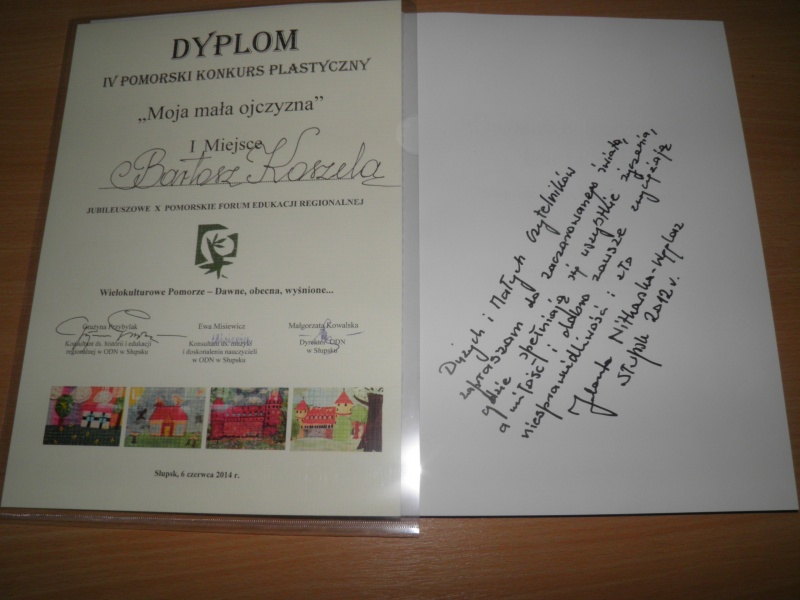 DYPLOM
IV POMORSKI KONKURS PLASTYCZNY
„Moja mała ojczyzna”
I Miejsce
Bartosz Koszela
JUBILEUSZOWE X POMORSKIE FORUM EDUKACJI REGIONALNEJ
Wielokulturowe Pomorze – Dawne, obecna, wyśnione...
Grażyna Przybylak
Konsultant ds. historii i edukacji
regionalnej w ODN w Słupsku
Ewa Misiewicz
Konsultant ds. muzyki
i doskonalenia nauczycieli
w ODN w Słupsku
Małgorzata Kowalska
Dyrektor ODN
w Słupsku
Słupsk, 6 czerwca 2014 r.
Dużych i Małych Czytelników
zapraszam do zaczarowanego świata,
gdzie spełniają się wszystkie życzenia,
a miłość i dobro zawsze zwyciężają
niesprawiedliwości i zło
Jolanta Nitkowska-Węglarz
Słupsk 2012 r.